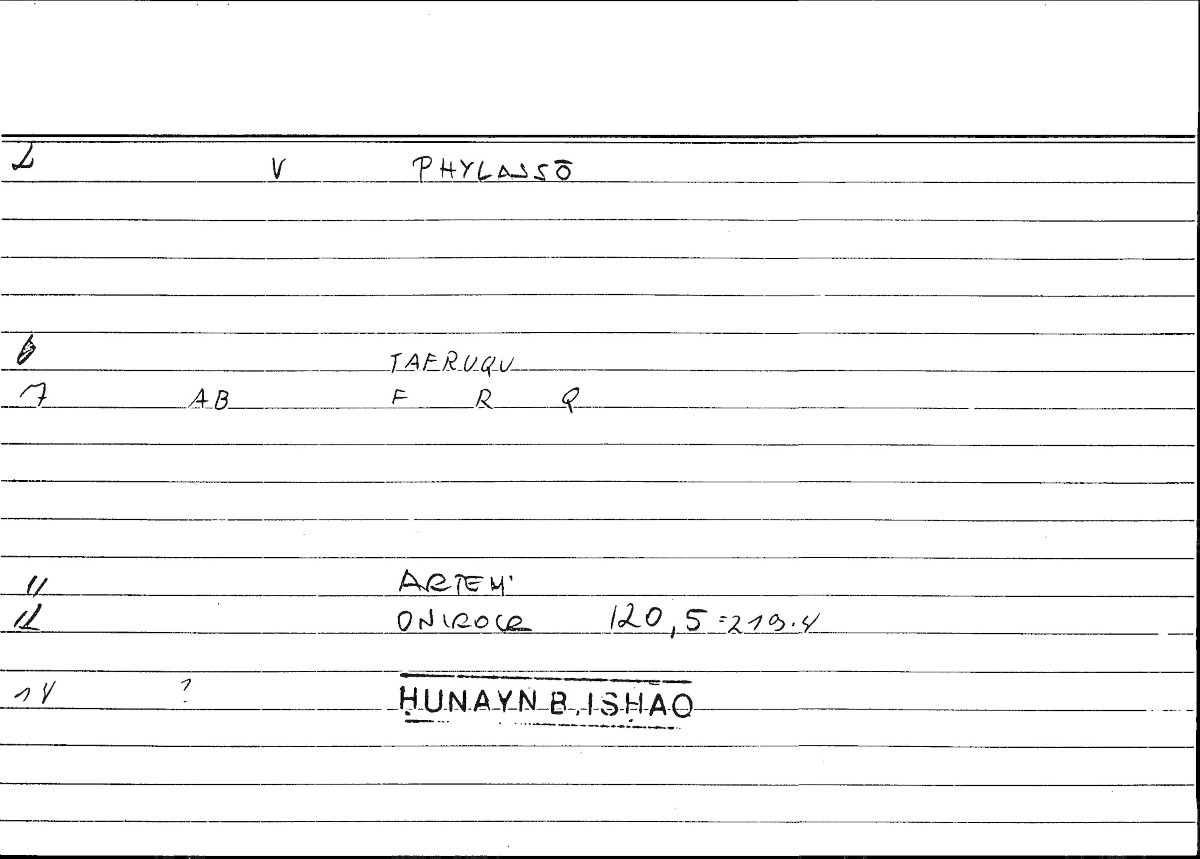 2 V PHYLASSŌ
6 TAFRUQU
7 AB F R Q
11 ARTEM'
12 ONIROCR 120,5=219.4
14 ? ḤUNAYN B. ISḤAQ